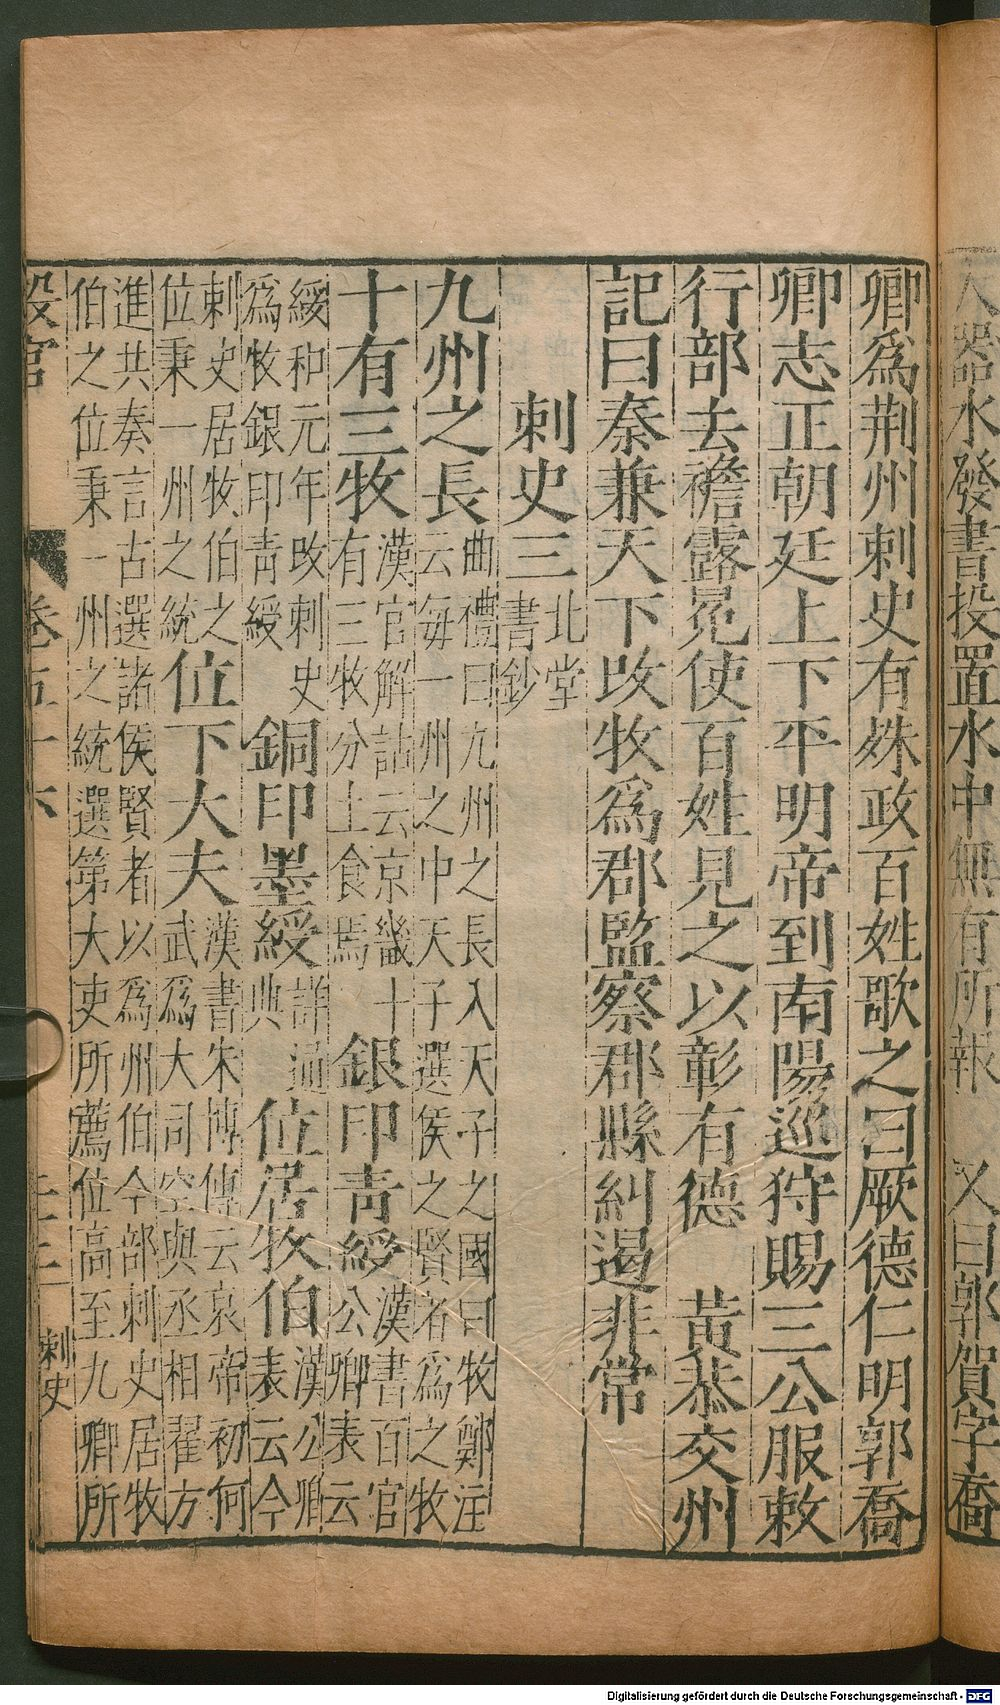 人器水發書投置水中無有所報 又曰郭賀字喬
卿爲荆州刺史有殊政百姓歌之曰厥德仁明郭喬
卿志正朝廷上下平明帝到南陽巡狩賜三公服敕
行部去襜露冕使百姓見之以彰有德 黃恭交州
記曰秦兼天下改牧爲郡監察郡縣糾遏非常
刺史三
北堂
書鈔
九州之長
曲禮曰九州之長入天子之國曰牧鄭注
云每一州之中天子選侯之賢者爲之牧
十有三牧
漢官解詁云京畿十
有三牧分土食焉
銀印靑綬
漢書百官
公卿表云
綏和元年改刺史
爲牧銀印靑綬
銅印墨綬
詳通
典
位居牧伯
漢公卿
表云今
刺史居牧伯之
位秉一州之統
位下大夫
漢書朱博傳云哀帝初何
武爲大司空與丞相翟方
進共奏言古選諸侯賢者以爲州伯今部刺史居牧
伯之位秉一州之統選第大吏所薦位高至九卿所
設官
卷五十六
刺史
Digitalisierung gefördert durch die Deutsche Forschungsgemeinschaft - DFG